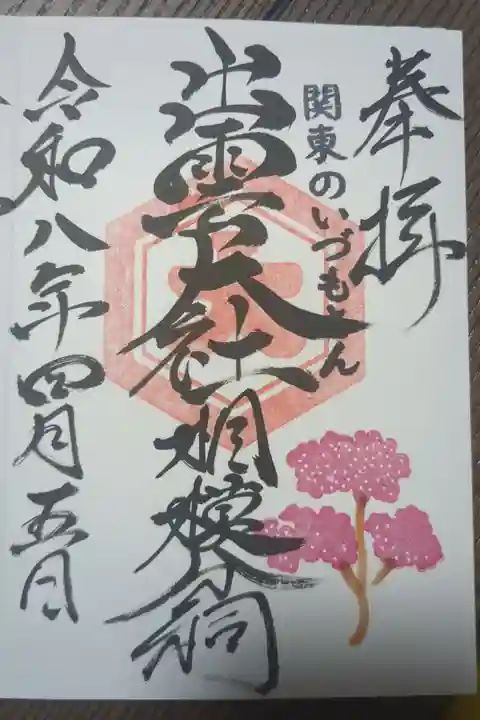 奉拝
関東のいづもさん
出雲大社相模分祠
令和八年四月五日